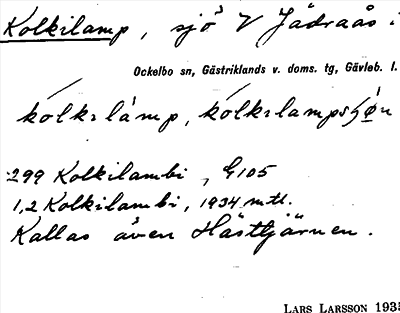 Kolkilamp, sjö V Jädraås i
Ockelbo sn, Gästriklands v. doms. tg, Gävleb. l.
kólkılàmp, kólkılampsjǿn
299 Kolkilambi, G105
1,2 Kolkilambi, 1934 mtl.
Kallas även Hästtjärnen.
LARS LARSSON 1935